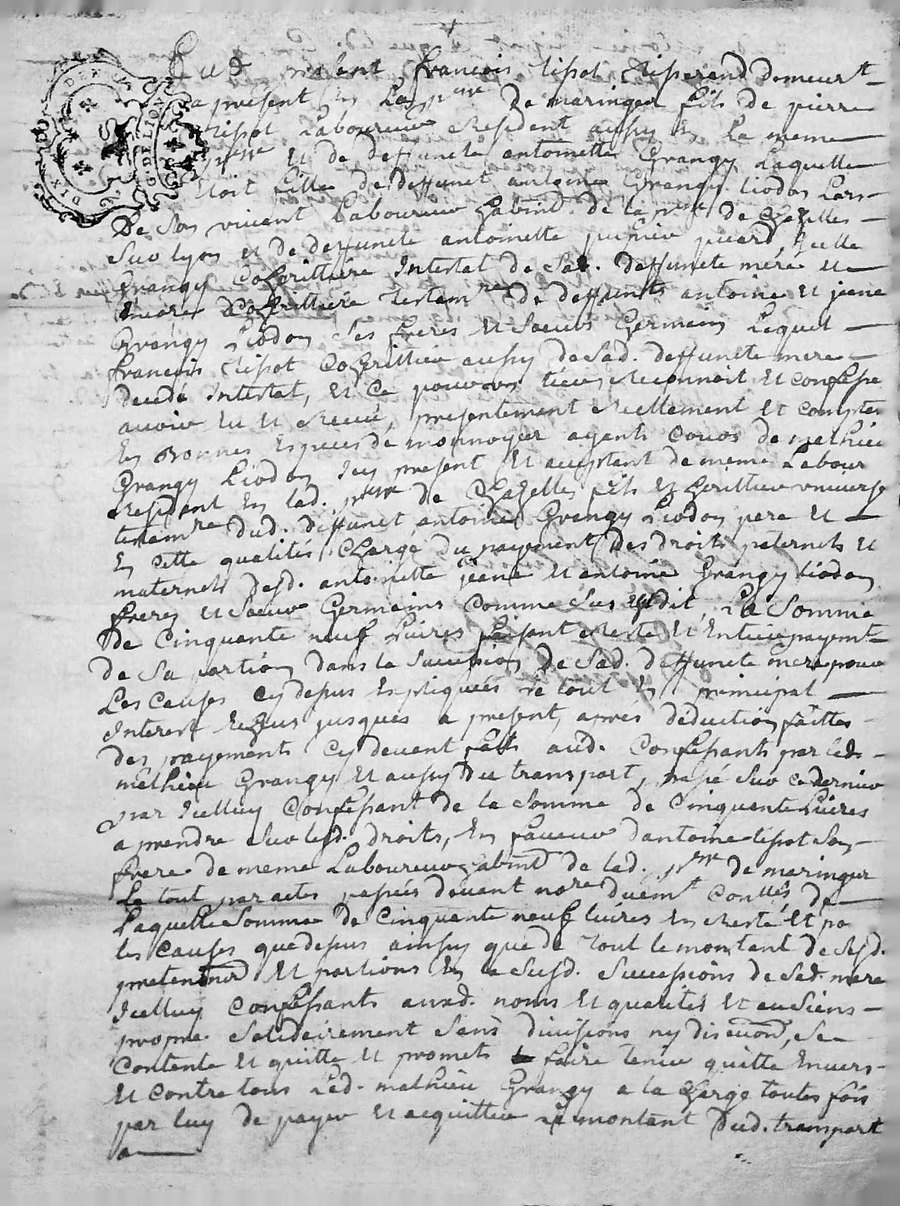 présent françois tipot tisserand demeurt
a present en la psse de maringer fils de pierre
tipot Laboureur residant aussy en la meme
psse et de deffuncte antoinette Grangy Laquelle
Etoit fille de deffunct antoine Grangy Liodon Lors
De son vivant Laboureur habint. de la psse de Chazelles
Sur lyon et de deffuncte antoinette picard, Icelle
Grangy Cohérittière Intestat de Sad. deffuncte mère et
Encore Cohérittière testamre de deffunts antoine et jeane
Grangy Liodon Ses frères et Soeurs Germains Lequel
françois tipot Cohérittier aussy de Sad. deffuncte mere
decedé Intestat, et Ce pouvoir reconnoit et confesse
avoir Eu et Receu, présentement Réellement et comptés
En Bonnes Especes de monnoyes ayants Cours de mathieu
Grangy Liodon Icy present et acceptant de meme Labour
residant En lad. psse de Chazelles fils et hérittier universe
testamre dud. deffunct antoine Grangy Liodon père et
En cette qualités Chargé du payement des droits paternels et
maternels desd. antoinette jeane et antoine Grangy Liodon
freres et soeurs Germains Comme Sus Est dit, La Somme
De Cinquante neuf Livres faisant Reste et Entier payemt
de Sa portion dans la Succession de Sad. deffuncte mere pour
Les Causes Cy dessus Expliquées le tout En principal
Interest Echeus jusques a présent, après déduction faitte
des payements cy devant faits aud. Confessants par led.
mathieu Grangy et aussy du transport, passé Sur ce dernier
par Icelluy Confessant de la Somme de Cinquante Livres
a prendre Sur lesd. droits, En faveur d'antoine tipot Son
frere de meme Laboureur habint de lad. psse de maringer
Le tout par actes passés devant nore duemt Conllés de
Laquelle Somme de Cinquante neuf Livres En Reste et po
les Causes que dessus ainssy que de tout le montant de Sesd.
et portions En la Susd. Successions de Sad. mere
Icelluy Confessants auxd. noms et qualités et au Siens
propre solidairement Sans divisions ny discuon, Se
Contente et quitte et promets faire tenir quitte Envers
Et Contre tous Led. mathieu Grangy a la Charge toutes fois
par luy de payer et acquitter Le montant Dud. transport
a